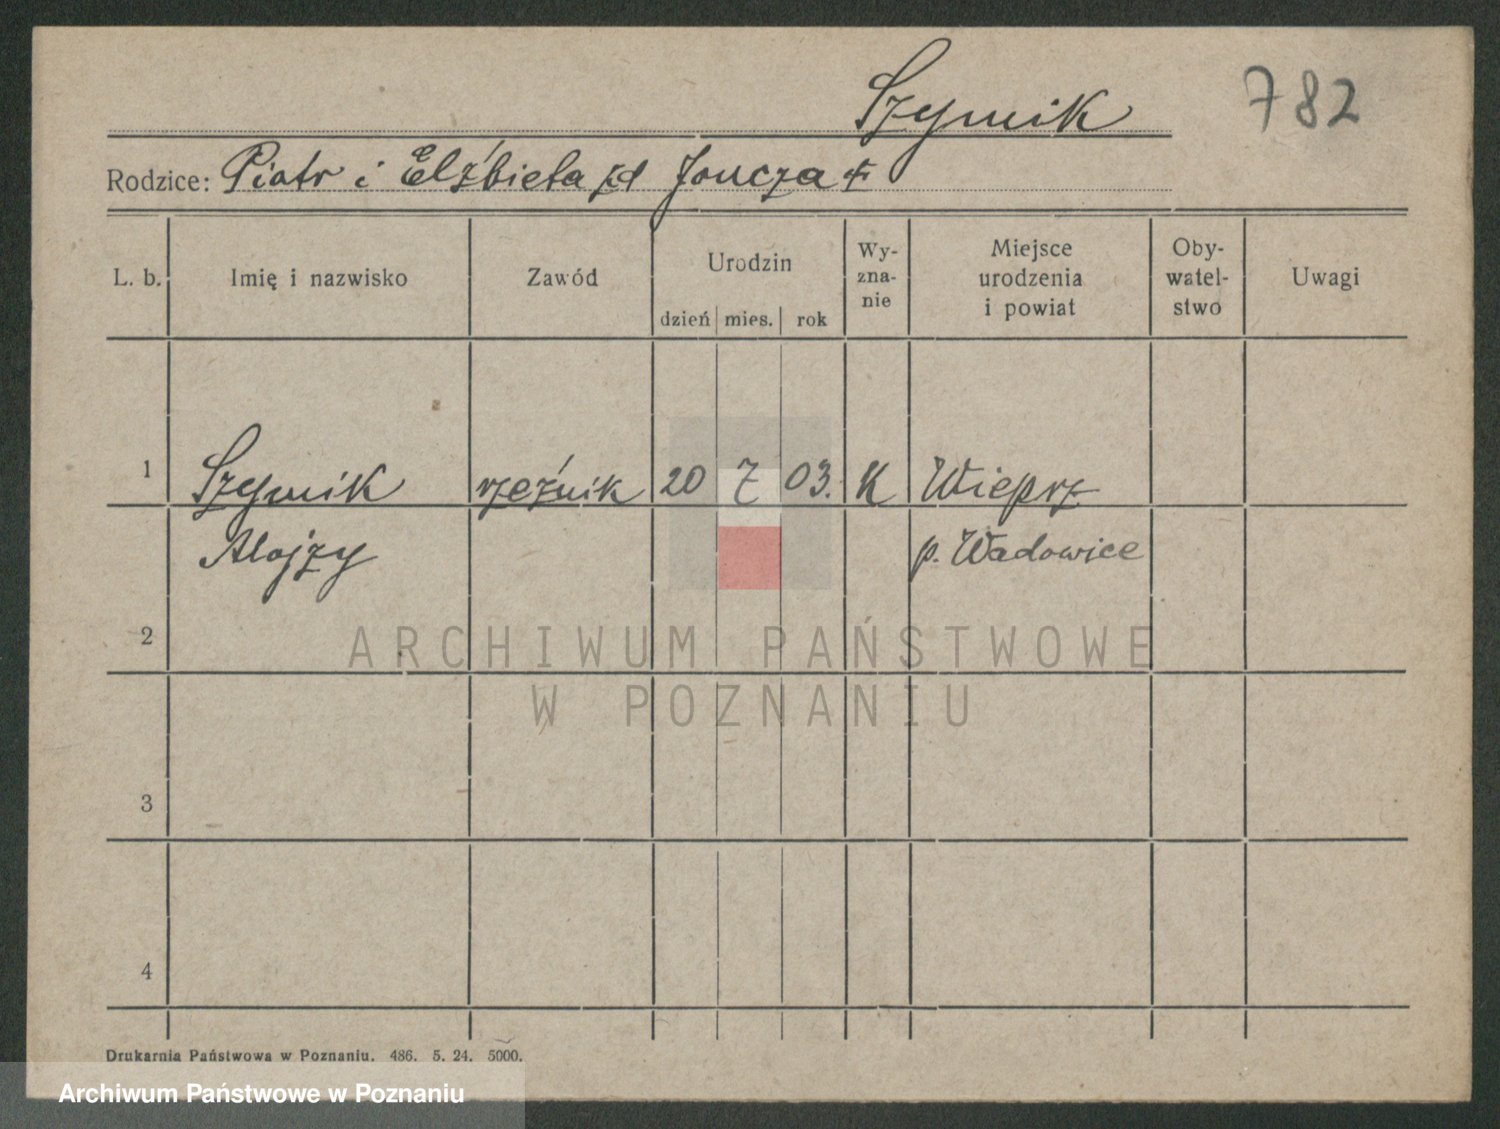 Szymik 782
Rodzice: Piotr i Elżbieta zd Jończak
L. b. Imię i nazwisko Zawód Urodzin dzień mies. rok Wy-zna-nie Miejsce urodzenia i powiat Oby-watel-stwo Uwagi
1 Szymik rzeźnik 20 7 03. K Wieprz
Alojzy p. Wadowice
2
ARCHIWUM PAŃSTWOWE
W POZNANIU
3
4
Drukarnia Państwowa w Poznaniu. 486. 5. 24. 5000.
Archiwum Państwowe w Poznaniu